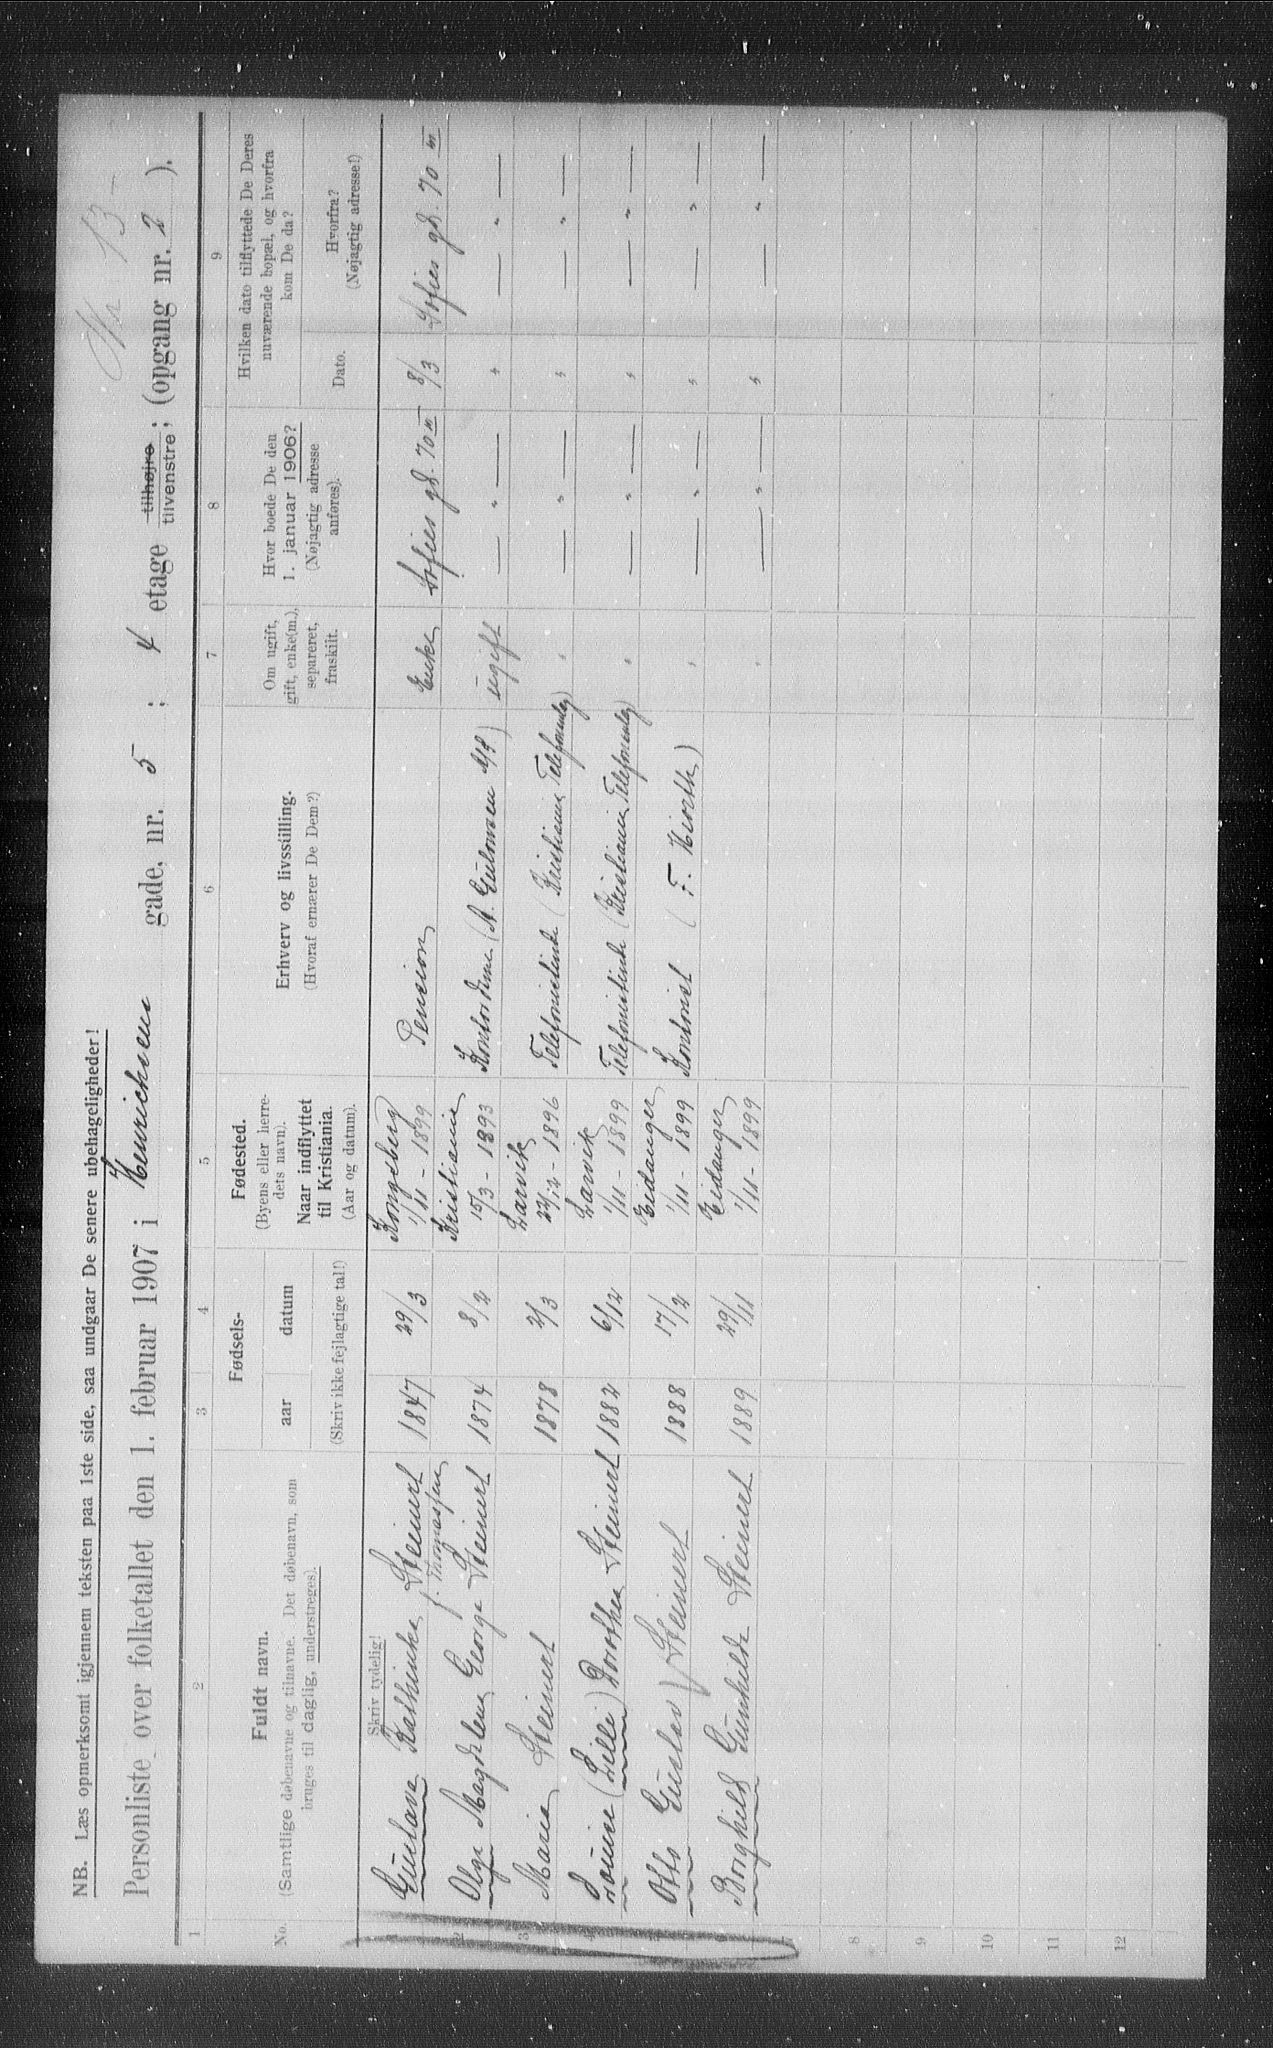 Nr 13 –
NB. Læs opmerksomt igjennem teksten paa 1ste side, saa undgaar De senere ubehageligheder!
Personliste over folketallet den 1. februar 1907 i Henrichsens gade, nr. 5 ; 4 etage tilhøjre tilvenstre; (opgang nr. 2 ).
1 2 3 4 5 6 7 8 9
No.
Fuldt navn.
(Samtlige døbenavne og tilnavne. Det døbenavn, som
bruges til daglig, understreges).
Fødsels-
aar datum
(Skriv ikke fejlagtige tal!)
Fødested.
(Byens eller herre-
dets navn).
Naar indflyttet
til Kristiania.
(Aar og datum).
Erhverv og livsstilling.
(Hvoraf ernærer De Dem?)
Om ugift,
gift, enke(m.),
separeret,
fraskilt.
Hvor boede De den
1. januar 1906?
(Nøjagtig adresse
anføres).
Hvilken dato tilflyttede De Deres
nuværende bopæl, og hvorfra
kom De da?
Dato.
Hvorfra?
(Nøjagtig adresse!)
Skriv tydelig!
1 Gustava Kathinka Steinert f. Thomassen 1847 29/3 Kongsberg 1/11 - 1899 Pension Enke Sofies gd. 70 III 8/3 Sofies gd. 70 III
2 Olga Magdalena George Steinert 1874 8/2 Kristiania 15/3 - 1893 Kontordame ( ) ugift — " — " — " —
3 Maria Steinert 1878 2/3 Larvik 23/12 - 1896 Telefonistinde (Kristiania Telefonanlæg) " — " — " — " —
4 Louise (Lilli) Dorothea Steinert 1882 6/12 Larvik 1/11 - 1899 Telefonistinde (Kristiania Telefonanlæg) " — " — " — " —
5 Otto Gustav Steinert 1888 17/2 Eidanger 1/11 - 1899 Kontorist (F. Hiorth) " — " — " — " —
6 Borghild Gunhilde Steinert 1889 29/11 Eidanger 1/11 - 1899 " — " — " — " —
7
8
9
10
11
12